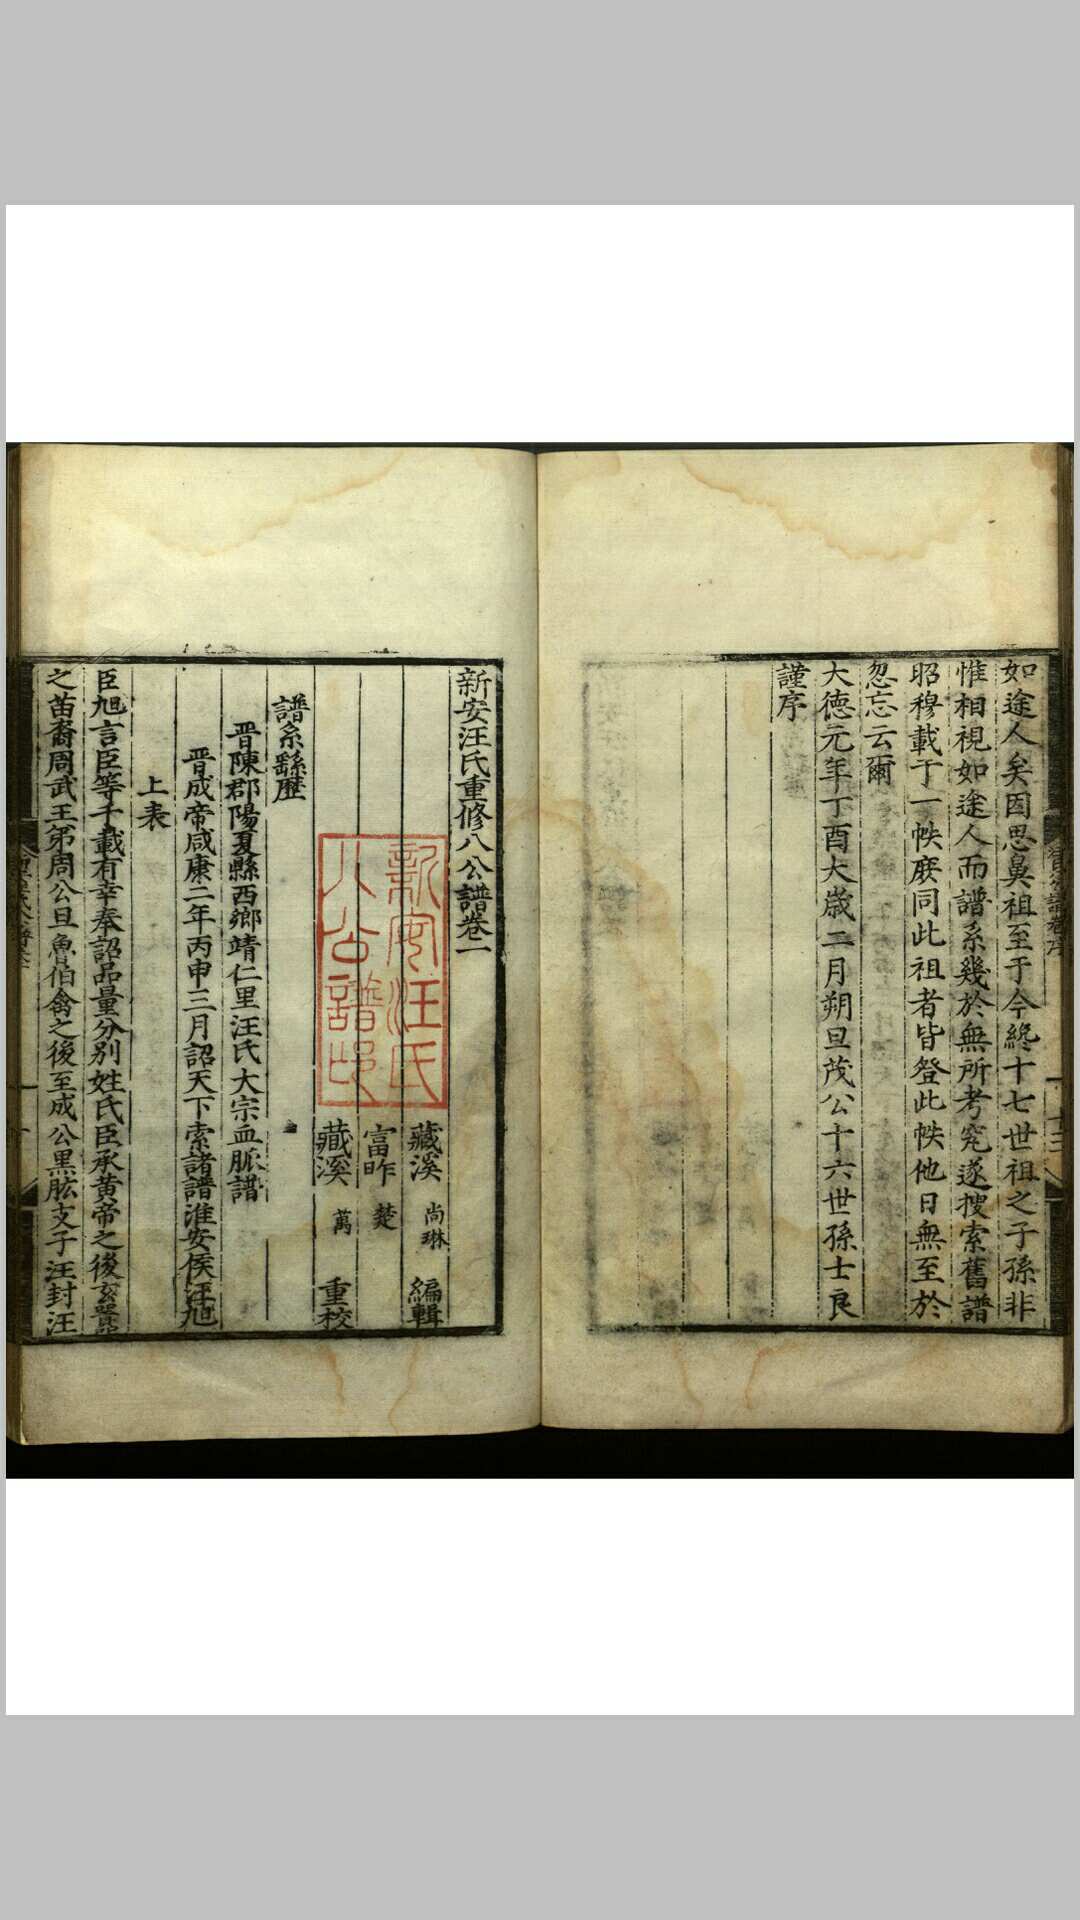 如途人矣因思鼻祖至于今終十七世祖之子孫非
惟相視如途人而譜系幾於無所考究遂搜索舊譜
昭穆載于一帙庶同此祖者皆登此帙他日無至於
忽忘云爾
大徳元年丁酉大歳二月朔旦茂公十六世孫士良
謹序
新安汪氏重修八公譜卷一
藏溪 尚琳 編輯
富昨 楚
藏溪 萬 重校
新安汪氏
八公譜印
譜系繇歷
晋陳郡陽夏縣西鄉靖仁里汪氏大宗血脈譜
晋成帝咸康二年丙申三月詔天下索諸譜淮安侯汪旭
上表
臣旭言臣等千載有幸奉詔品量分别姓氏臣承黄帝之後玄囂
之苗裔周武王弟周公旦魯伯禽之後至成公黒肱支子汪封汪